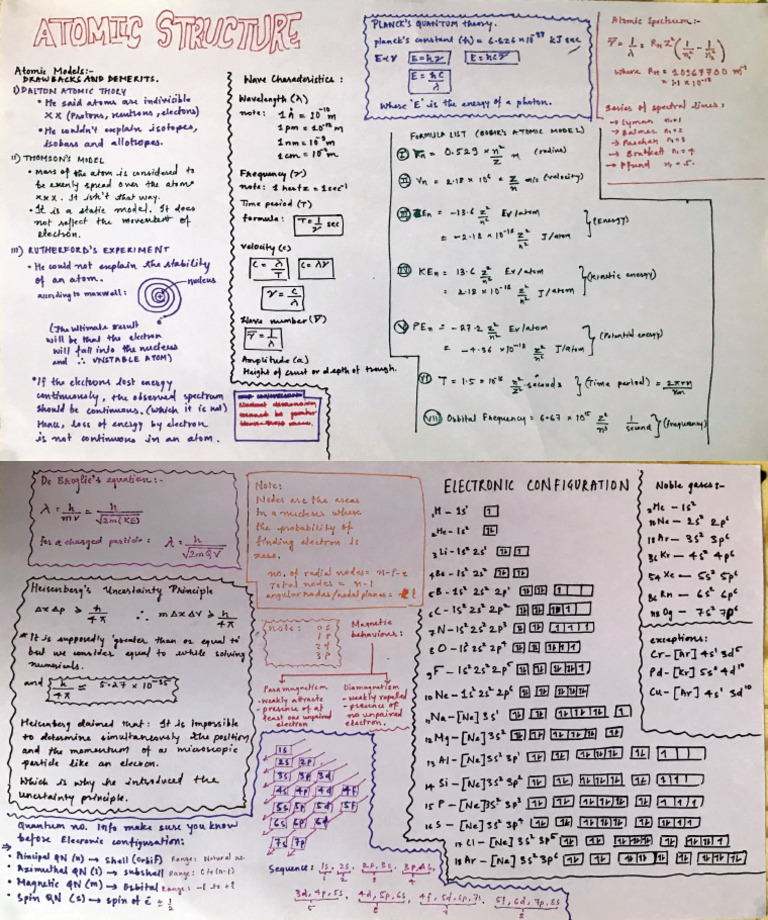 ATOMIC STRUCTURE
Atomic Models:-
DRAWBACKS AND DEMERITS.
I) DALTON ATOMIC THORY
• He said atoms are indivisible
XX (Protons, neutrons, electons)
• He couldn't explain isotopes,
isobars and allotropes.
II) THOMSON'S MODEL
• mass of the atom is considered to
be evenly spread over the atom
xxx. It isn't that way.
• It is a static model. It does
not reflect the movement of
electron.
III) RUTHERFORD'S EXPERIMENT
• He could not explain the stability
of an atom.
nucleus
according to maxwell:
(The ultimate result
will be that the electron
will fall into the nucleus
and ∴ UNSTABLE ATOM)
• If the electrons lost energy
continuously, the observed spectrum
should be continuous. (which it is not)
Hence, loss of energy by electron
is not continuous in an atom.
Wave Characteristics:
Wavelength (λ)
note: 1Å = 10⁻¹⁰ m
1pm = 10⁻¹² m
1nm = 10⁻⁹ m
1cm = 10⁻² m
Frequency (ν)
note: 1 hertz = 1 sec⁻¹
Time period (T)
formula: T = 1/ν sec
Velocity (c)
C = λ/T C = λν
ν = C/λ
Wave number (ν̅)
ν̅ = 1/λ
Amplitude (a)
Height of crust or depth of trough.
PLANCK'S QUANTUM theory.
planck's constant (h) = 6.626 × 10⁻³⁷ kJ sec
E∝ν E = hν E = hc
E = hc/λ
Where 'E' is the energy of a photon.
Atomic Spectrum:-
ν̅ = 1/λ = R_H Z² (1/n₁² - 1/n₂²)
where R_H = 10967700 m⁻¹
Series of spectral lines:
→ Lyman n₁=1
→ Balmer n₁=2
→ Paschan n₁=3
→ Brackett n₁=4
→ Pfund n₁=5.
FORMULA LIST (BOHR'S ATOMIC MODEL)
I rn = 0.529 × n²/Z m (radius)
II Vn = 2.18 × 10⁶ × Z/n m/s (velocity)
III En = -13.6 z²/n² Ev/atom
= -2.18 × 10⁻¹⁸ z²/n² J/atom
(Energy)
IV KEn = 13.6 z²/n² Ev/atom
= 2.18 × 10⁻¹⁸ z²/n² J/atom
(kinetic energy)
V PEn = -27.2 z²/n² Ev/atom
= -4.36 × 10⁻¹⁸ z²/n² J/atom
(Potential energy)
VI T = 1.5 × 10⁻¹⁶ n³/z² seconds (Time period) = 2πrn/Vn
VII Orbital Frequency = 6.67 × 10¹⁵ z²/n³ 1/second (frequency)
De Broglie's equation:-
λ = h/mv = h/√2m(KE)
for a charged particle: λ = h/√2mQV
Heisenberg's Uncertainty Principle
Δx Δp ≥ h/4π ∴ m Δx Δv ≥ h/4π
* It is supposedly greater than or equal to
but we consider equal to while solving
numericals.
and h/4π = 5.27 × 10⁻³⁵
Heisenberg claimed that: It is impossible
to determine simultaneously the position
and the momentum of a microscopic
particle like an electron.
Which is why he introduced the
uncertainty principle.
Quantum no. Info make sure you know
before Elecronic configuration:
• Principal QN (n) → Shell (orbit) Range: Natural no.
• Azimuthal QN (l) → subshell Range: 0 to (n-1)
• Magnetic QN (m) → Orbital Range: -l to +l
• Spin QN (s) → spin of ē ± 1/2
Note:
Nodes are the areas
In a nucleus where
the probability of
finding electron is
zero.
no. of radial nodes = n-l-1
Total nodes = n-1
angular nodes/nodal planes = l
note: 0 s
1 p
2 d
3 f
Magnetic
behaviour:
Paramagnetism
- weakly attracts
- presence of at
least one unpaired
electron
Diamagnetism
- weakly repelled
- presence of
no unpaired
electron.
1s
2s 2p
3s 3p 3d
4s 4p 4d 4f
5s 5p 5d 5f
6s 6p 6d
7s 7p
Sequence: 1s, 2s, 2p,3s, 3p,4s,
3d, 4p, 5s, 4d, 5p, 6s, 4f, 5d, 6p, 7s, 5f, 6d, 7p, 8s
ELECTRONIC CONFIGURATION
1H - 1s¹
2He - 1s²
3Li - 1s² 2s¹
4Be - 1s² 2s²
5B - 1s² 2s² 2p¹
6C - 1s² 2s² 2p²
7N - 1s² 2s² 2p³
8O - 1s² 2s² 2p⁴
9F - 1s² 2s² 2p⁵
10Ne - 1s² 2s² 2p⁶
11Na - [Ne] 3s¹
12Mg - [Ne] 3s²
13Al - [Ne] 3s² 3p¹
14Si - [Ne] 3s² 3p²
15P - [Ne] 3s² 3p³
16S - [Ne] 3s² 3p⁴
17Cl - [Ne] 3s² 3p⁵
18Ar - [Ne] 3s² 3p⁶
Noble gases:-
2He - 1s²
10Ne - 2s² 2p⁶
18Ar - 3s² 3p⁶
36Kr - 4s² 4p⁶
54Xe - 5s² 5p⁶
86Rn - 6s² 6p⁶
118Og - 7s² 7p⁶
exceptions:
Cr - [Ar] 4s¹ 3d⁵
Pd - [Kr] 5s⁰ 4d¹⁰
Cu - [Ar] 4s¹ 3d¹⁰